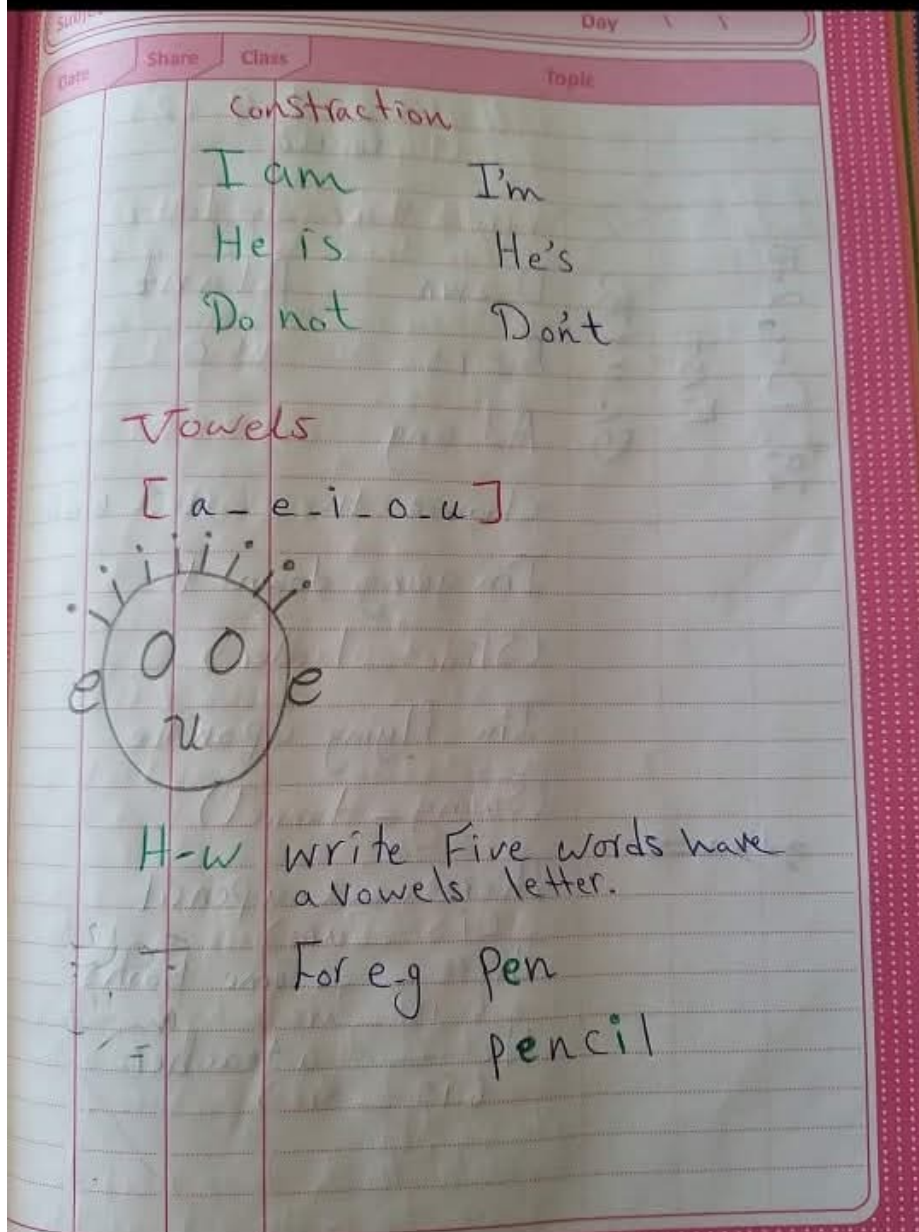 Subje
Day \ \
Date Share Class Topic
Constraction
I am I'm
He is He's
Do not Don't
Vowels
[ a - e - i - o - u ]
e o o e
u
H-w write Five words have
a vowels letter.
For e.g Pen
pencil